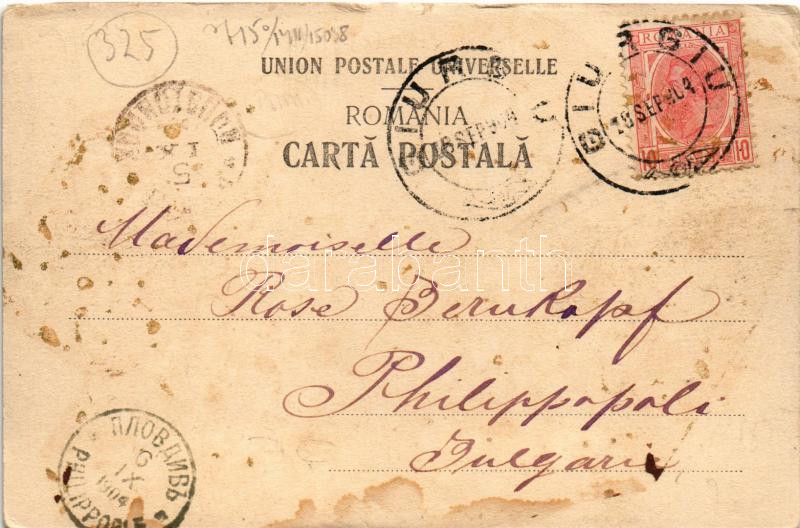 325
UNION POSTALE UNIVERSELLE
ROMANIA
CARTĂ POSTALĂ
ROMANIA
10 10
GIURGIU
GIURGIU
18 SEP 904
Mademoiselle
Rose Bernkopf
Philippopoli
Bulgarie
ПЛОВДИВЪ
6
IX
1904
PHILIPPOPLE
darabanth